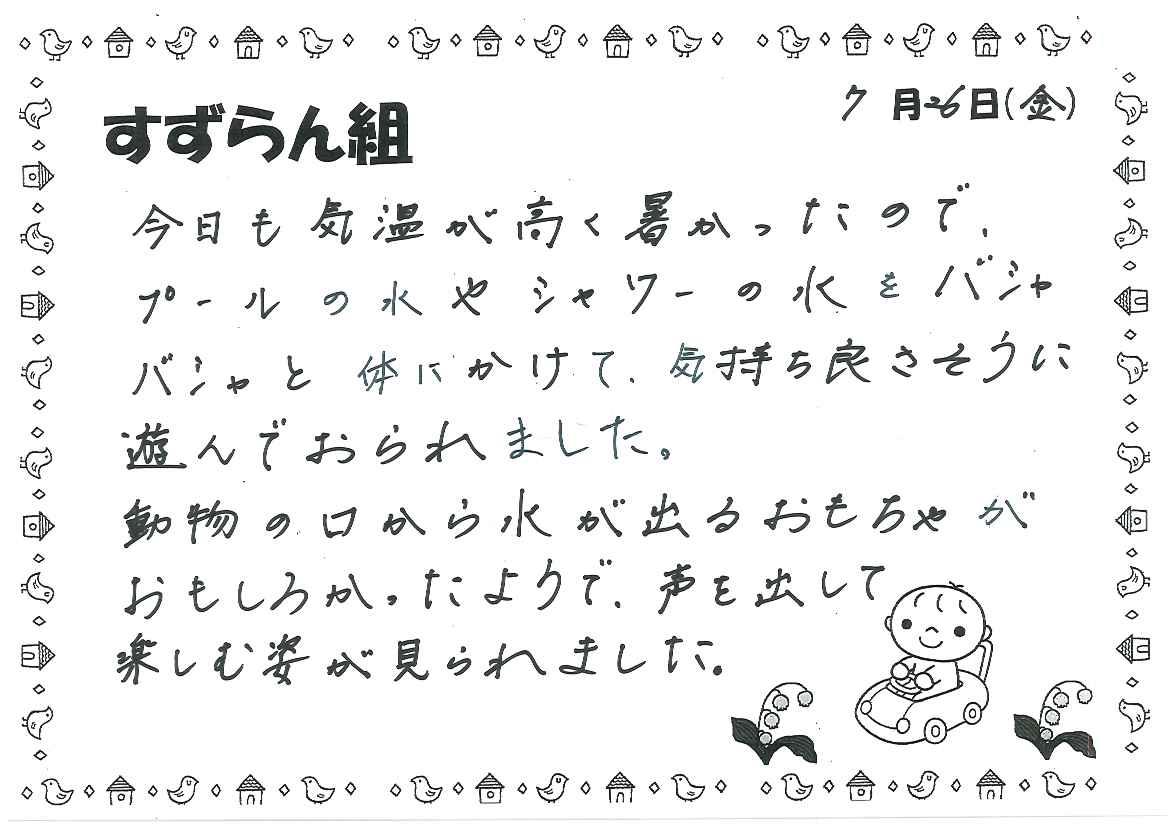 7月26日(金)
すずらん組
今日も気温が高く暑かったので、
プールの水やシャワーの水をバシャ
バシャと体にかけて、気持ち良さそうに
遊んでおられました。
動物の口から水が出るおもちゃが
おもしろかったようで、声を出して
楽しむ姿が見られました。